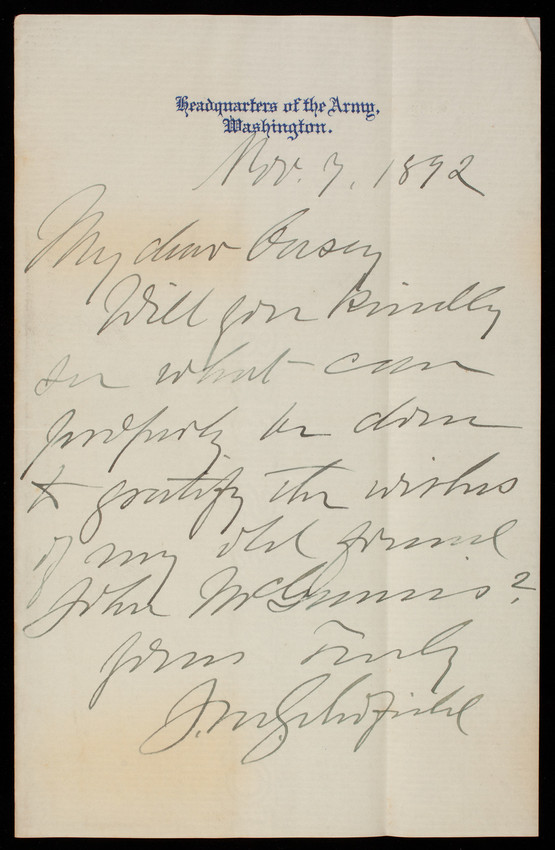 Headquarters of the Army,
Washington.
Nov. 7, 1892
My dear Casey
Will you kindly
see what can
properly be done
to gratify the wishes
of my old friend
John McGinnis?
Yours Truly
J. M. Schofield